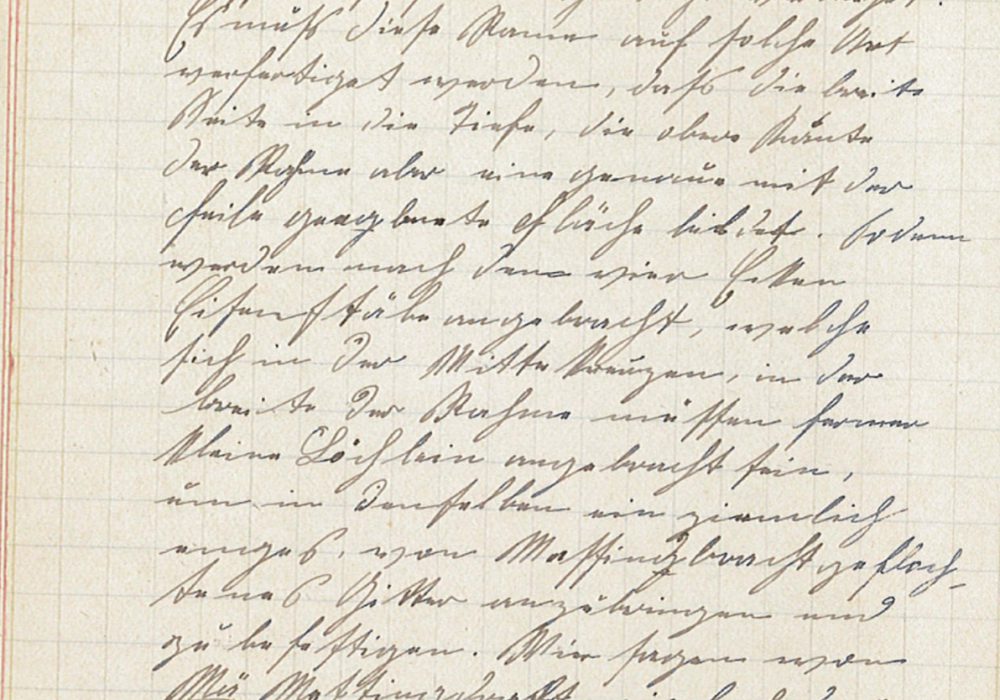 Es muß diese Rame auf solche Art
verfertiget werden, daß die breite
Seite in die Tiefe, die obere Kante
der Rahme aber eine genaue mit der
Feile geegbnete Fläche bildet. Sodann
werden nach den vier Ecken
Eisenstäbe angebracht, welche
sich in der Mitte kreuzen, in der
breite der Rahme müssen ferner
kleine Löchlein angebracht sein,
um in denselben ein ziemlich
enges, von Messingdracht gefloch-
tenes Gitter anzubringen und
zu befestigen. Wir sagen von